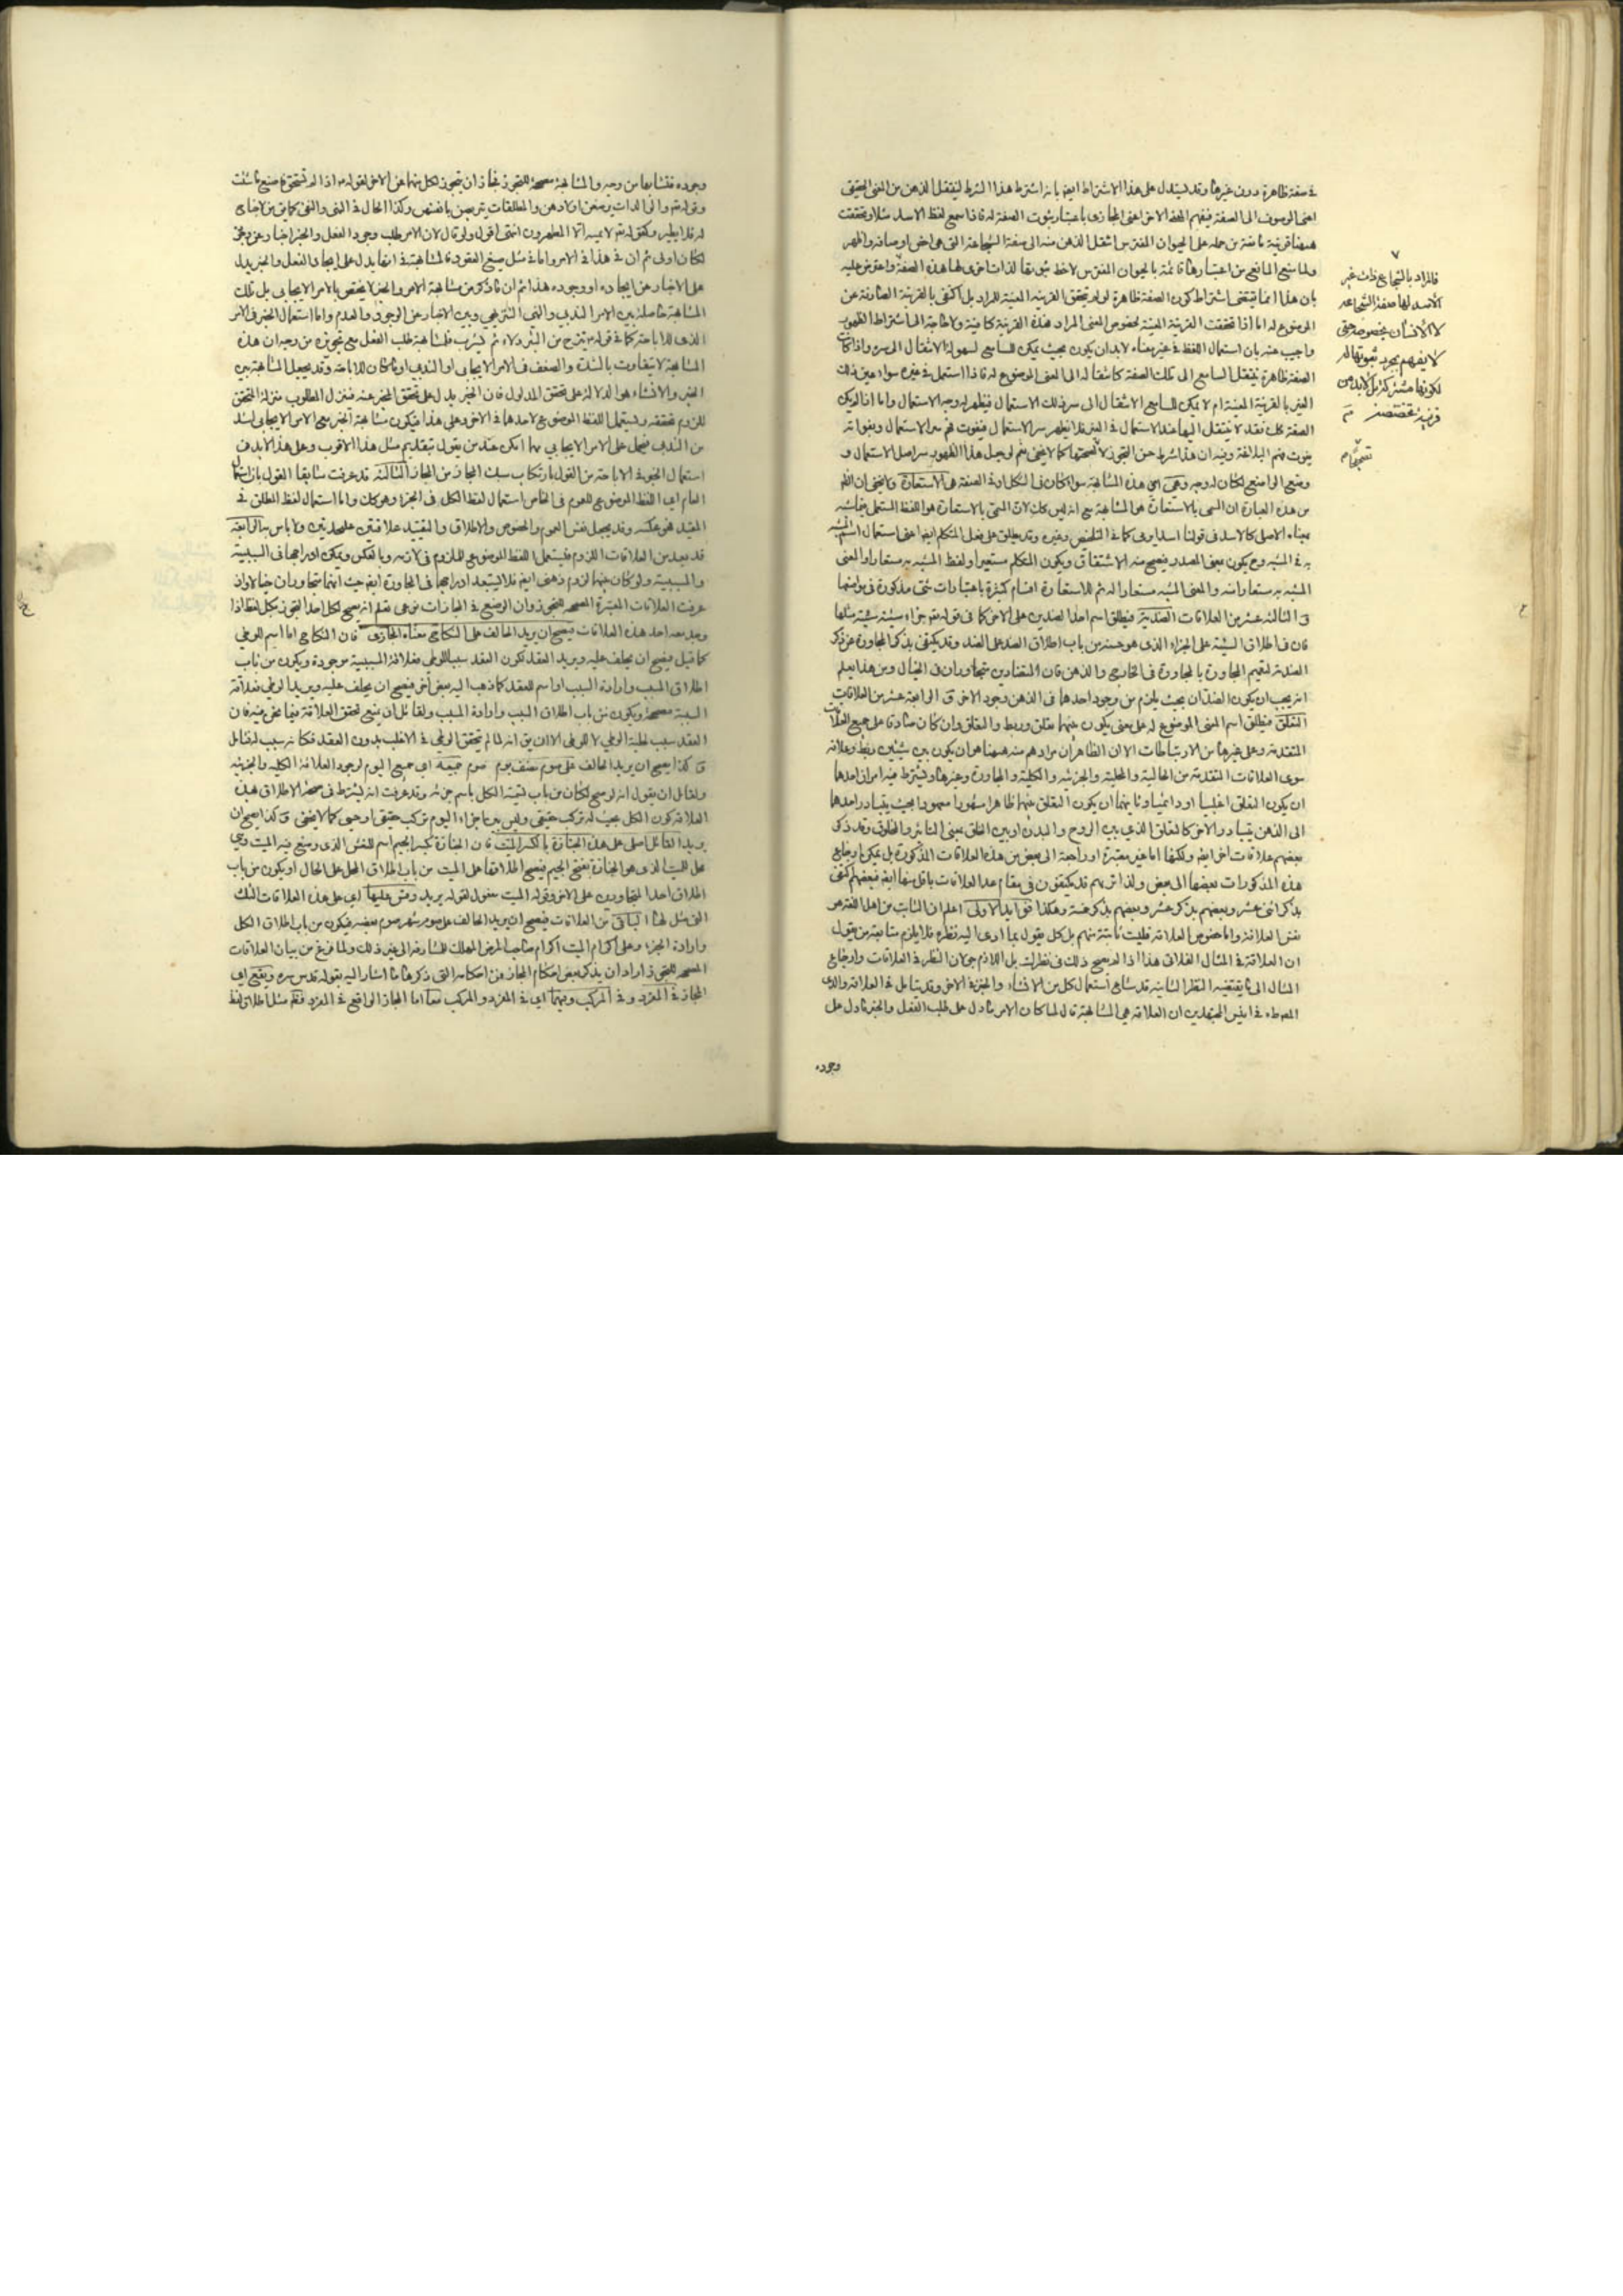 في صفة ظاهرة دون غيرها وقد يستدل على هذا الاشتراط ايضا بانه اشترط هذا الشرط لينتقل الذهن من المعنى الحقيقي
اعنى الموصوف الى الصفة فيفهم المعنى الاخر اعنى المجازى باعتبار ثبوت الصفة له فاذا سمع لفظ الاسد مثلا وتحققت
هيهنا قرينة مانعة من حمله على الحيوان المفترس انتقل الذهن منه الى صفة الشجاعة التى هى اخص اوصافه واظهر
بان هذا انما يقتضى اشتراط كون الصفة ظاهرة لو لم تتحقق القرينه المعينة للمراد بل اكتفى بالقرينة الصارفة عن
الموضوع له اما اذا تحققت القرينة المعينة لخصوص المعنى المراد فهذه القرينة كافية ولا حاجة الى اشتراط الظهور
واجيب عنه بان استعمال اللفظ فى غير معناه لا بد ان يكون بحيث يمكن للسامع لسهولة الانتقال الى سره واذا كانت
الصفة ظاهرة ينتقل السامع الى تلك الصفة كانتقاله الى المعنى الموضوع له فاذا استعمل فى غيره سواء عين ذلك
الغير بالقرينة المعينة ام لا يمكن للسامع الانتقال الى سر ذلك الاستعمال فيظهر له وجه الاستعمال واما اذا لم يكن
الصفة كك فقد لا ينتقل اليها عند الاستعمال فى الغير فلا يظهر سر الاستعمال فيفوت فهم سر الاستعمال وبفواته
يفوت فهم البلاغة وفيه ان هذا شرط حسن التجوز لا لصحتها كما لا يخفى نعم لو جعل هذا الظهور سر اصل الاستعمال و
وضع الواضع لكان له وجه وهى اى هذه المشابهة سواء كان فى الشكل او فى الصفة هى الاستعارة ولا يخفى ان الظ
من هذه العبارة ان المسمى بالاستعارة هو المشابهة مع انه ليس كك لان المسمى بالاستعارة هو اللفظ المستعمل فيما شبه
بمعناه الاصلى كالاسد فى قولنا اسد يرمى كما فى التلخيص وغيره وقد يطلق على فعل المتكلم ايضا اعنى استعمال اسم المشبه
به فى المشبه وح يكون بمعنى المصدر فيصح منه الاشتقاق ويكون المتكلم مستعيرا ولفظ المشبه به مستعارا والمعنى
المشبه به مستعارا منه والمعنى المشبه مستعارا له ثم للاستعارة اقسام كثيرة باعتبارات شتى مذكورة فى مواضعها
و الثالثة عشر من العلاقات الضدية فيطلق اسم احد الضدين على الاخر كما فى قوله تعالى جزاء سيئة سيئة مثلها
فان فى اطلاق السيئة على الجزاء الذى هو حسنة من باب اطلاق الضد على الضد وقد يكتفى بذكر المجاورة عن ذكر
الضدية لتعميم المجاورة بالمجاورة فى الخارج والذهن فان المتضادين متجاوران فى الخيال ومن هذا يعلم
انه يجب ان يكون الضدان بحيث يلزم من وجود احدهما فى الذهن وجود الاخر و الرابعة عشر من العلاقات
التعلق فيطلق اسم المعنى الموضوع له على معنى يكون بينهما تعلق وربط والتعلق وان كان صادقا على جميع العلاقات
المتقدمة وعلى غيرها من الارتباطات الا ان الظاهر ان مرادهم منه هيهنا هو ان يكون بين شيئين ربط وعلاقة
سوى العلاقات المتقدمة من الحالية والمحلية والجزئية والكلية والمجاورة وغيرها ويشترط فيه امران احدهما
ان يكون التعلق اغلبيا او دائميا وثانيهما ان يكون التعلق بينهما ظاهرا مشهورا معهودا بحيث يتبادر احدهما
الى الذهن بتبادر الاخر كالتعلق الذى بين الروح والبدن او بين الخلق بمعنى التاثير والمخلوق وقد ذكر
بعضهم علاقات اخر ايضا ولكنها اما غير معتبرة او راجعة الى بعض من هذه العلاقات المذكورة بل يمكن ارجاع
هذه المذكورات بعضها الى بعض ولذا تريهم قد يكتفون فى مقام عد العلاقات باقل منها ايضا فبعضهم اكتفى
بذكر اثنى عشر وبعضهم بذكر عشر وبعضهم بذكر خمسة وهكذا فوايد الاولى اعلم ان الثابت من اهل اللغة هو
نفس العلاقة واما خصوص العلاقة فليست ثابتة منهم بل كل يقول بما ادى اليه نظره فلا يلزم متابعة من يقول
ان العلاقة فى المثال الفلانى هذا اذا لم يصح ذلك فى نظرك بل اللازم جولان النظر فى العلاقات وارجاع
المثال الى ما يقتضيه النظر الثانية قد شاع استعمال كل من الانشاء والخبر فى الاخر وقد يتامل فى العلاقة والذى
ان العلاقة هى المشابهة قال لما كان الامر مما دل على طلب الفعل والخبر مما دل على
وجوده
فالمراد بالشجاع ذات غير
الاسد لها صفة الشجاعة
لا الانسان بخصوصه حتى
لا يفهم بمجرد ثبوتها له
لكونها مشتركة بل لا بد من
قرينة تخصصه
وجوده فتشابها من وجه والمشابهة مصححة للتجوز فجاز ان يتجوز لكل منهما عن الاخر لقوله اذا لم تستحى فاصنع ما شئت
وقوله تعالى والوالدات يرضعن اولادهن والمطلقات يتربصن بانفسهن وكذا الحال فى النهى والنفى
وكقوله تعالى لا يمسه الا المطهرون انتهى اقول ولو قال لان الامر طلب وجود الفعل والخبر اخبار عن وجوده
لكان اولى ثم ان هذا فى الامر واما فى مثل صيغ العقود فالمشابهة فى انها يدل على ايجاد الفعل والخبر يدل
على الاخبار عن ايجاده او وجوده هذا ثم ان ما ذكر من مشابهة الامر والخبر لا يختص بالامر الايجابى بل تلك
المشابهة حاصلة بين الامر الندبى والنهى التنزيهى وبين الاخبار عن الوجود والعدم واما استعمال الخبر فى الامر
المشابهة لا يتفاوت بالشدة والضعف فى الامر الايجابى او الندبى او ما كان للاباحة وقد يجعل المشابهة بين
الخبر والانشاء هو الدلالة على تحقق المدلول فان الخبر يدل على تحقق المخبر عنه فنزل المطلوب منزلة المتحقق
للزوم تحققه ويستعمل اللفظ الموضوع لاحدهما فى الاخر وعلى هذا فيكون مشابهة الخبر مع الامر الايجابى اشد
من الندبى فيحمل على الامر الايجابى مهما امكن عند من يقول بتقديم مثل هذا الاقرب وعلى هذا لا بد فى
استعمال الخبر فى الاباحة من القول بارتكاب سبك المجاز من المجاز الثالثة قد عرفت سابقا القول بان استعمال
العام اى اللفظ الموضوع للعموم فى الخاص استعمال لفظ الكل فى الجزء وهو كك واما استعمال لفظ المطلق فى
المقيد فهو عكسه وقد يجعل نفس العموم والخصوص والاطلاق والتقييد علاقتين عليحدتين ولا باس به الرابعة
قد يعد من العلاقات اللزوم فيستعمل اللفظ الموضوع للملزوم فى لازمه وبالعكس ويمكن ادراجها فى السببية
والمسببية ولو كان بينهما لزوم ذهنى ايضا فلا يستبعد ادراجها فى المجاورة ايضا حيث انهما متجاوران خيالا واذ
عرفت العلاقات المعتبرة المصححة للتجوز وان الوضع فى المجازات نوعى تعلم انه يصح لكل احد التجوز بكل لفظ اذا
وجد معه احد هذه العلاقات فيصح ان يريد الحالف على النكاح معناه المجازى فان النكاح اما اسم للوطى
كما قيل فيصح ان يحلف عليه ويريد العقد لكون العقد سببا للوطى فعلاقة المسببية موجودة ويكون من باب
اطلاق المسبب وارادة السبب او اسم للعقد كما ذهب اليه بعض اخر فيصح ان يحلف عليه ويريد الوطى فعلاقة
السببية مصححة ويكون من باب اطلاق السبب وارادة المسبب ولقائل ان يمنع تحقق العلاقة فيما نحن فيه فان
العقد سبب لحلية الوطى لا للوطى الا ان يق انه لما لم يتحقق الوطى فى الاغلب بدون العقد فكانه سبب له فتامل
و كذا يصح ان يريد الحالف على صوم نصف يوم صوم جميعه اى جميع اليوم لوجود العلاقة الكلية والجزئية
ولقائل ان يقول انه لو صح لكان من باب تسمية الكل باسم جزئه وقد عرفت انه يشترط فى صحة الاطلاق هذه
العلاقة كون الكل بحيث له تركب حقيقى وليس بين اجزاء اليوم تركب حقيقى او حسى كما لا يخفى و كذا يصح ان
يريد القائل اصلى على هذه الجنازة بالكسر الميت فان الجنازة بكسر الجيم اسم للنعش الذى وضع فيه الميت وهى
محل للميت الذى هو الجنازة بفتح الجيم فيصح اطلاقها على الميت من باب اطلاق المحل على الحال او يكون من باب
اطلاق احد المتجاورين على الاخر وقوله الميت مفعول لقوله يريد وقس عليها اى على هذه العلاقات الثلث
التى مثل لها الباقى من العلاقات فيصح ان يريد الحالف على صوم شهر صوم بعضه فيكون من باب اطلاق الكل
وارادة الجزء وعلى اكرام الميت اكرام صاحب المرض المهلك للمشارفة الى غير ذلك ولما فرغ من بيان العلاقات
المصححة للتجوز اراد ان يذكر بعض احكام المجاز فمن احكامه التى ذكرها ما اشار اليه بقوله قدس سره ويقع اى
المجاز فى المفرد و فى المركب وفيهما اى فى المفرد والمركب معا اما المجاز الواقع فى المفرد فقط مثل اطلاق لفظ